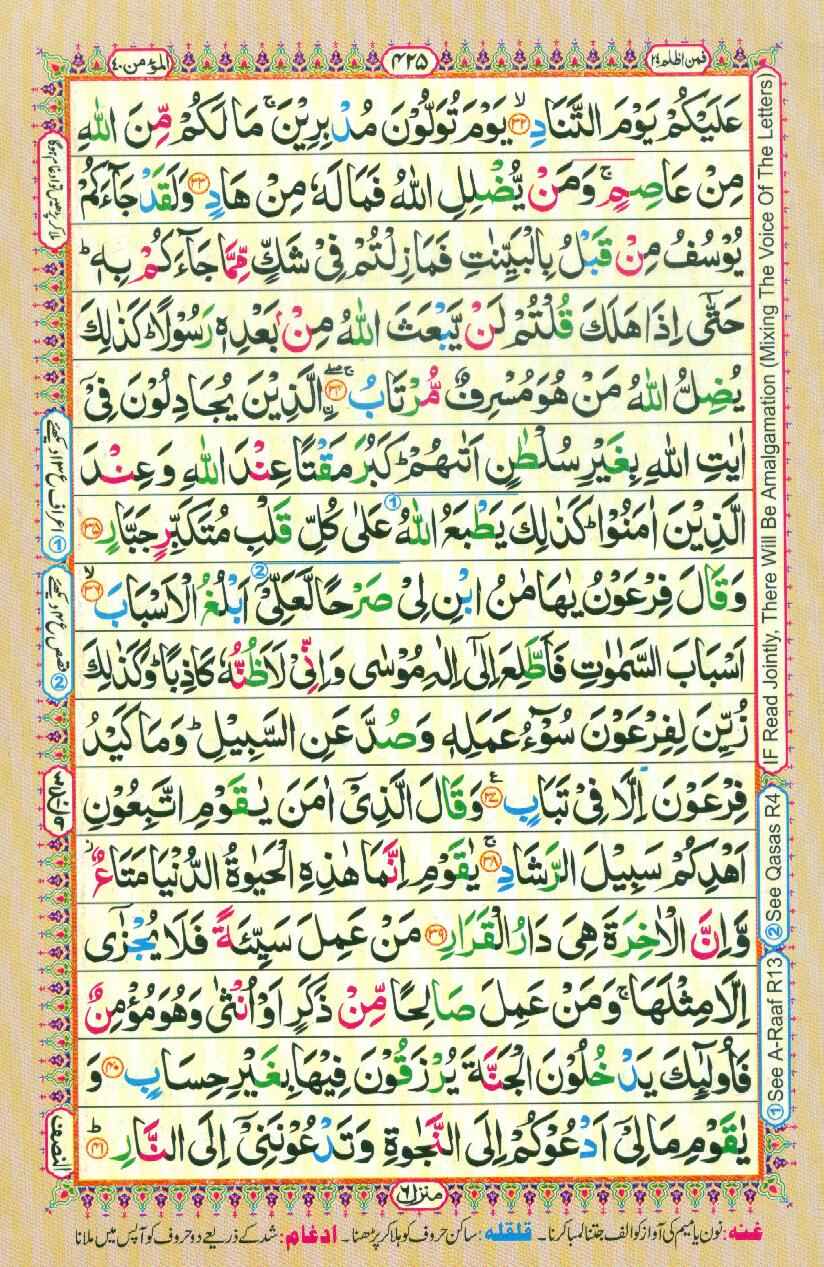 المؤمن ٤٠
٤٢٥
فمن اظلم ٢٤
عَلَيْكُمْ يَوْمَ التَّنَادِ ﴿٣٢﴾ۙ يَوْمَ تُوَلُّوْنَ مُدْبِرِيْنَ ۚ مَا لَكُمْ مِّنَ اللّٰهِ
مِنْ عَاصِمٍ ۚ وَمَنْ يُّضْلِلِ اللّٰهُ فَمَا لَهٗ مِنْ هَادٍ ﴿٣٣﴾ وَلَقَدْ جَآءَكُمْ
يُوْسُفُ مِنْ قَبْلُ بِالْبَيِّنٰتِ فَمَا زِلْتُمْ فِيْ شَكٍّ مِّمَّا جَآءَكُمْ بِهٖ ؕ
حَتّٰٓى اِذَا هَلَكَ قُلْتُمْ لَنْ يَّبْعَثَ اللّٰهُ مِنْۢ بَعْدِهٖ رَسُوْلًا ؕ كَذٰلِكَ
يُضِلُّ اللّٰهُ مَنْ هُوَ مُسْرِفٌ مُّرْتَابُ ﴿٣٤﴾ۚۖ ۨالَّذِيْنَ يُجَادِلُوْنَ فِيْٓ
اٰيٰتِ اللّٰهِ بِغَيْرِ سُلْطٰنٍ اَتٰىهُمْ ؕ كَبُرَ مَقْتًا عِنْدَ اللّٰهِ وَعِنْدَ
الَّذِيْنَ اٰمَنُوْا ؕ كَذٰلِكَ يَطْبَعُ اللّٰهُ ① عَلٰى كُلِّ قَلْبِ مُتَكَبِّرٍ جَبَّارٍ ﴿٣٥﴾
وَقَالَ فِرْعَوْنُ يٰهَامٰنُ ابْنِ لِيْ صَرْحًا ② لَّعَلِّيْٓ اَبْلُغُ الْاَسْبَابَ ﴿٣٦﴾ۙ
اَسْبَابَ السَّمٰوٰتِ فَاَطَّلِعَ اِلٰٓى اِلٰهِ مُوْسٰى وَاِنِّيْ لَاَظُنُّهٗ كَاذِبًا ؕ وَكَذٰلِكَ
زُيِّنَ لِفِرْعَوْنَ سُوْٓءُ عَمَلِهٖ وَصُدَّ عَنِ السَّبِيْلِ ؕ وَمَا كَيْدُ
فِرْعَوْنَ اِلَّا فِيْ تَبَابٍ ﴿٣٧﴾ۧ وَقَالَ الَّذِيْٓ اٰمَنَ يٰقَوْمِ اتَّبِعُوْنِ
اَهْدِكُمْ سَبِيْلَ الرَّشَادِ ﴿٣٨﴾ۚ يٰقَوْمِ اِنَّمَا هٰذِهِ الْحَيٰوةُ الدُّنْيَا مَتَاعٌ ؗ
وَّاِنَّ الْاٰخِرَةَ هِيَ دَارُ الْقَرَارِ ﴿٣٩﴾ مَنْ عَمِلَ سَيِّئَةً فَلَا يُجْزٰٓى
اِلَّا مِثْلَهَا ۚ وَمَنْ عَمِلَ صَالِحًا مِّنْ ذَكَرٍ اَوْ اُنْثٰى وَهُوَ مُؤْمِنٌ
فَاُولٰٓئِكَ يَدْخُلُوْنَ الْجَنَّةَ يُرْزَقُوْنَ فِيْهَا بِغَيْرِ حِسَابٍ ﴿٤٠﴾ وَ
يٰقَوْمِ مَا لِيْٓ اَدْعُوْكُمْ اِلَى النَّجٰوةِ وَتَدْعُوْنَنِيْٓ اِلَى النَّارِ ﴿٤١﴾ؕ
IF Read Jointly, There Will Be Amalgamation (Mixing The Voice Of The Letters)
② See Qasas R4
① See A-Raaf R13
① اعراف ع ١٣ اد يكھئے
② قصص ع ٤ اد يكھئے
النصف
منزل ٦
غنہ : نون یا میم کی آواز کو الف جتنا لمبا کرنا ۔ قلقلہ : ساکن حروف کو ہلا کر پڑھنا ۔ ادغام : شد کے ذریعے دو حروف کو آپس میں ملانا